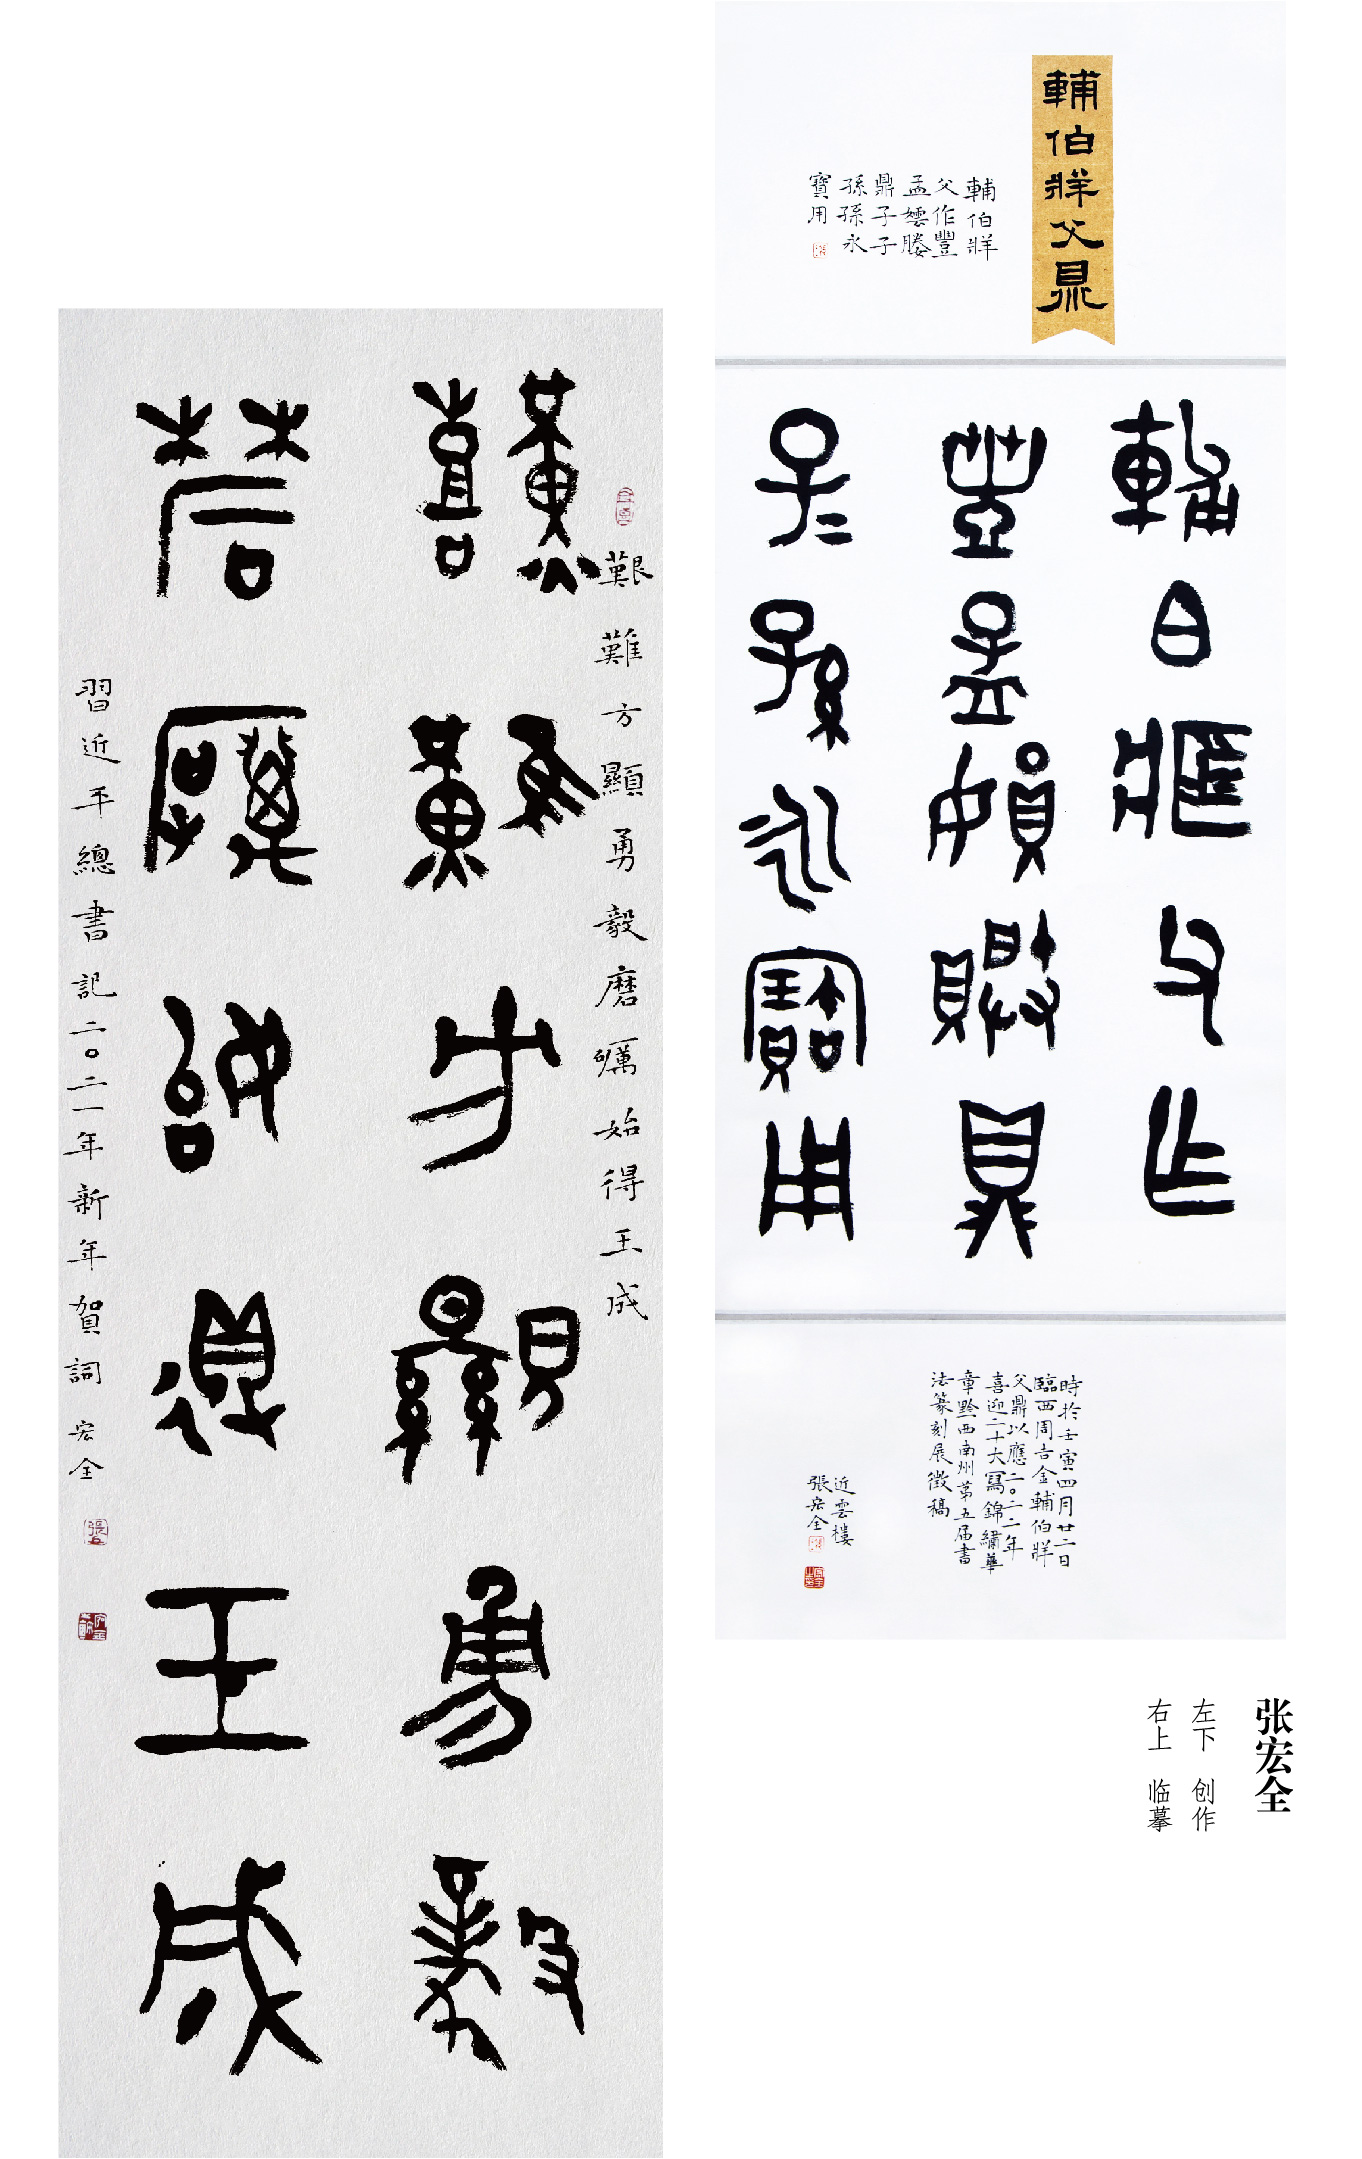 輔伯𤖅父鼎
輔伯𤖅
父作豐
孟嬭媵
鼎子子
孫孫永
寶用
輔伯𤖅父作
豐孟嬭媵鼎
子子孫孫永寶用
時於壬寅四月廿二日
臨西周吉金輔伯𤖅
父鼎以應二〇二二年
喜迎二十大寫錦繡華
章黔西南州第五屆書
法篆刻展徵稿
近雲樓
張宏全
艱難方顯勇毅磨礪始得玉成
艱難方顯勇毅
磨礪始得玉成
習近平總書記二〇二一年新年賀詞 宏全
张宏全
左下 创作
右上 临摹